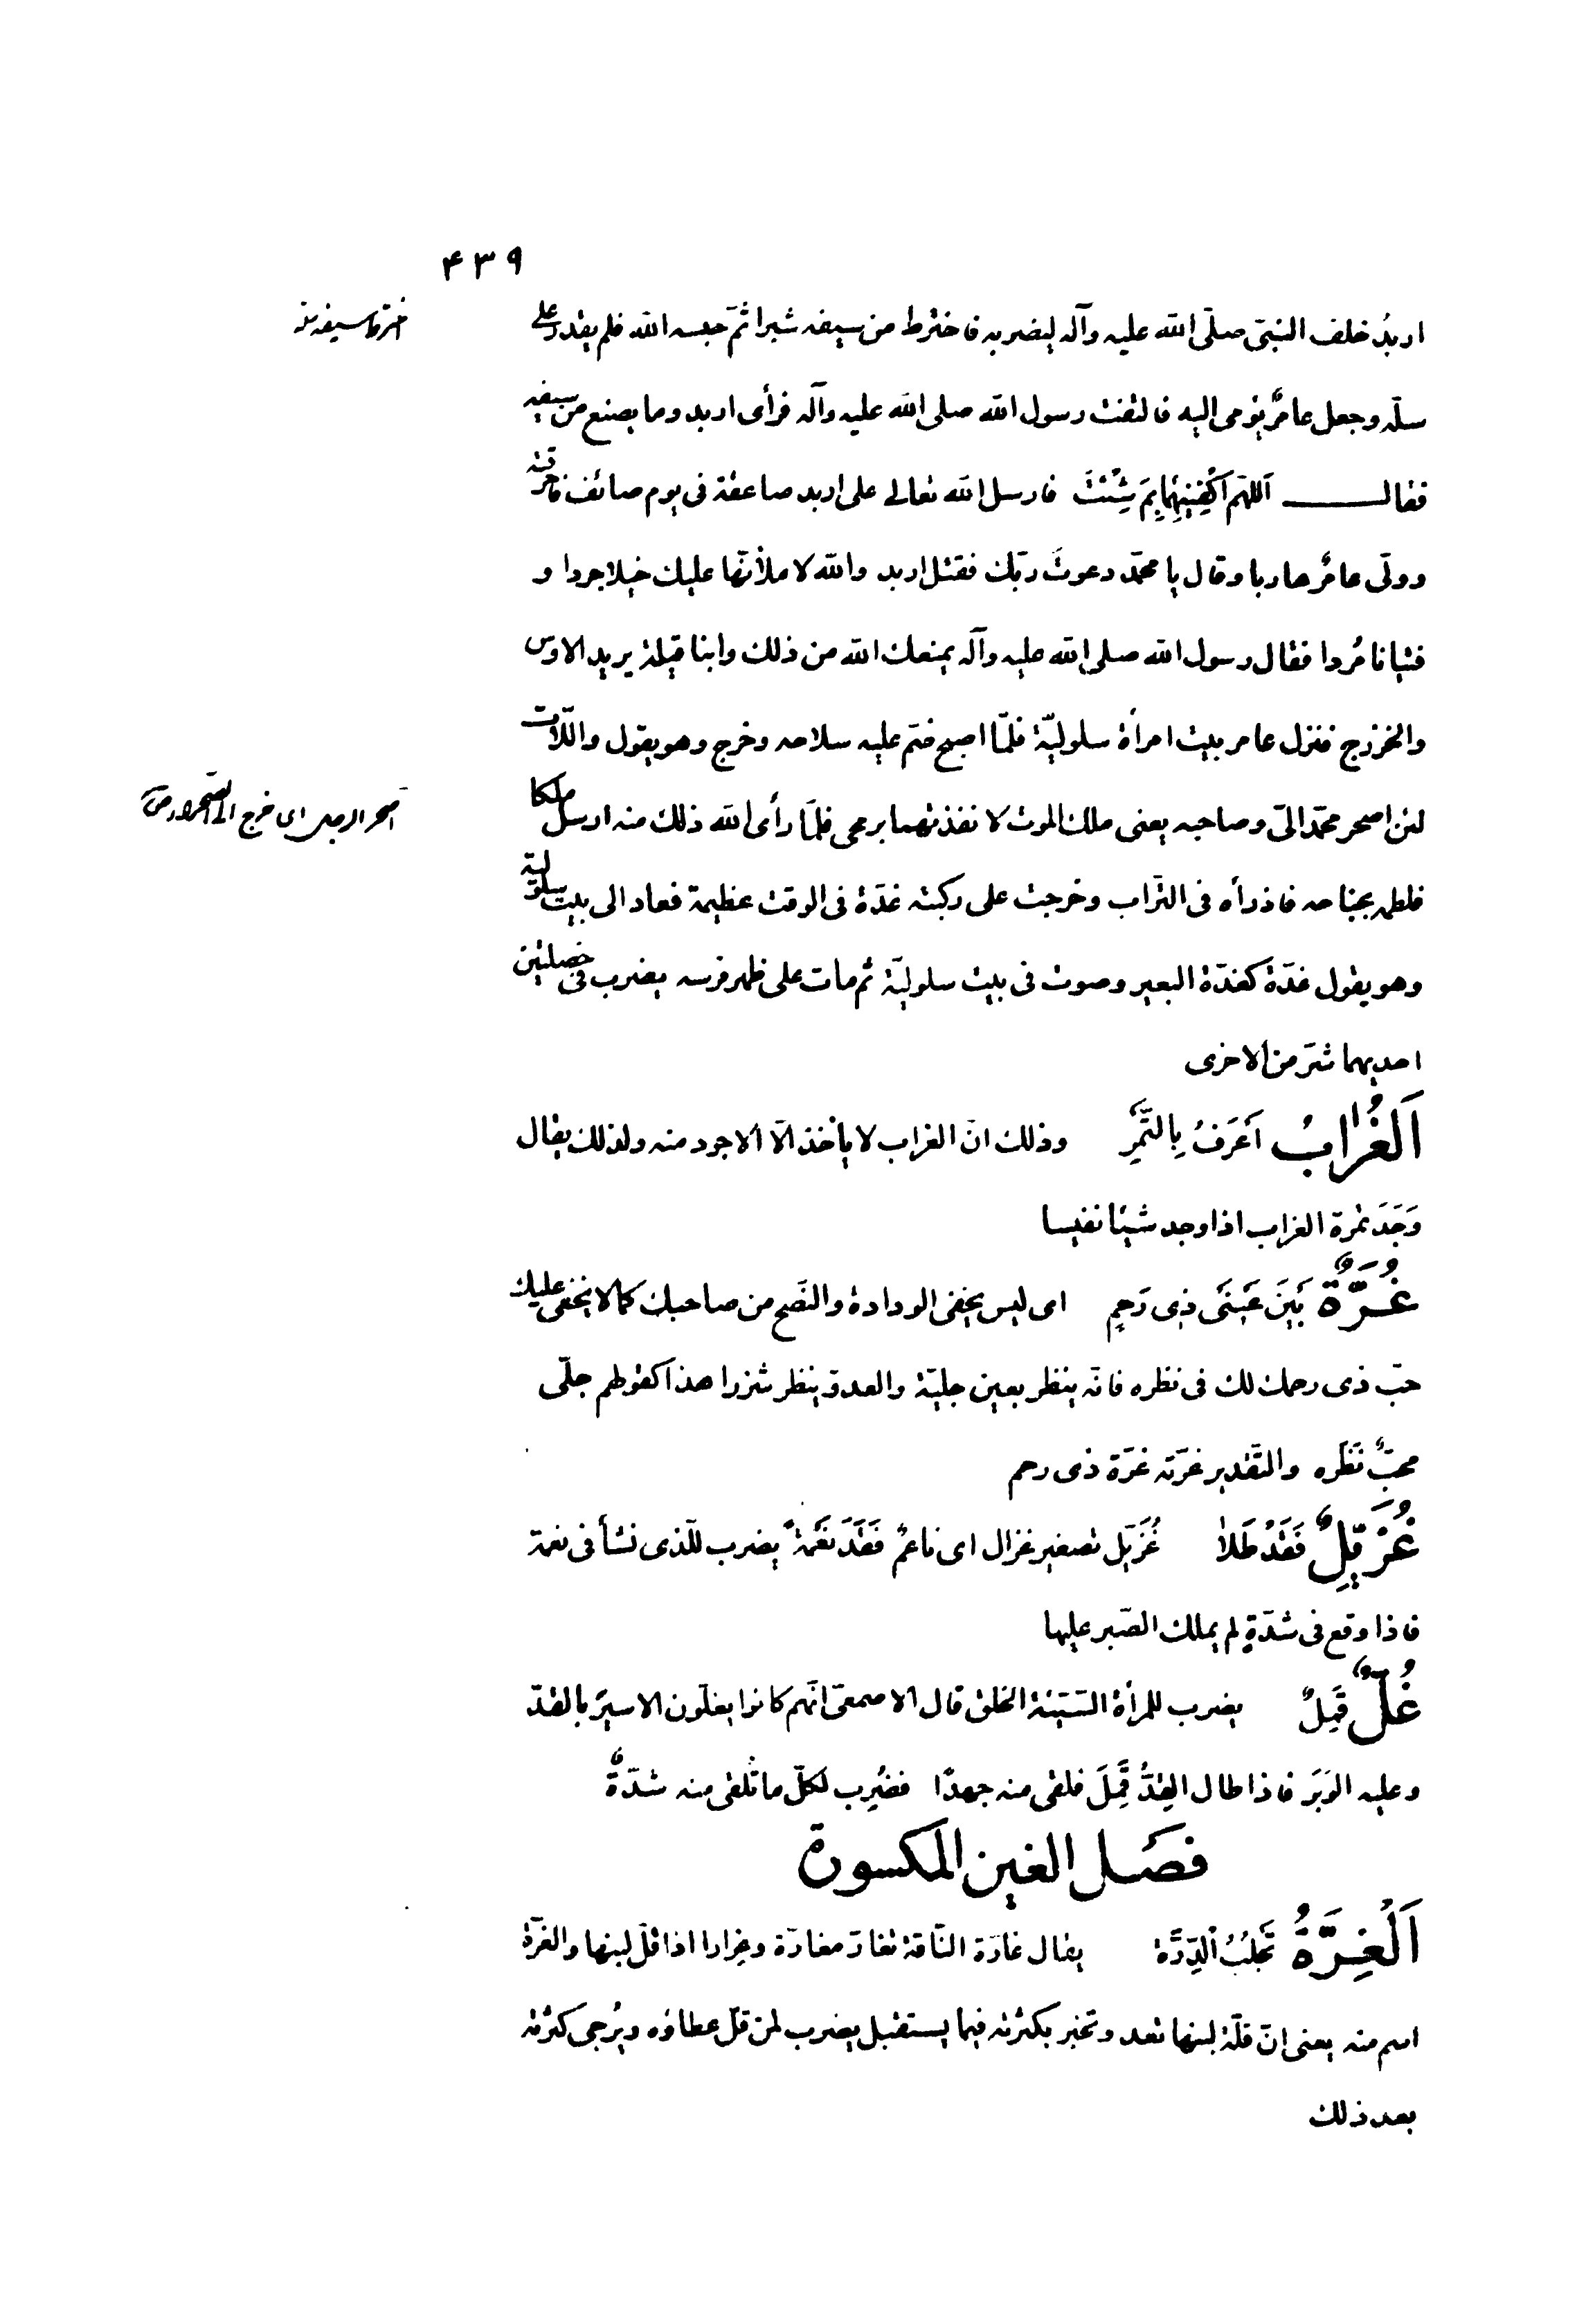 ۴۳۹
اربدُ خلف النبىّ صلّى الله عليه وآله ليضربه فاخترط من سيفه شبرا ثمّ حبسه الله فلم يقدر على
اخترط سيفه سلّه
سلّه وجعل عامرٌ يومى اليه فالتفت رسول الله صلى الله عليه وآله فرأى اربد وما يصنع من سيفه
فقال اَللّهمّ اَكْفِنِيهِمَا بِمَ شِئْتَ فارسل الله تعالى على اربد صاعقة فى يوم صائف فاحرقته
وولّى عامرٌ هاربا وقال يا محمّد دعوتَ ربّك فقتل اربد والله لاملأنّها عليك خيلا جردا و
فتيانا مُردا فقال رسول الله صلى الله عليه وآله يمنعك الله من ذلك وابنا قيلة يريد الاوس
والخزرج فنزل عامر بيت امرأة سلوليّة فلمّا اصبح ضمّ عليه سلاحه وخرج وهو يقول واللّات
لئن اصحر محمّد الىّ وصاحبه يعنى ملك الموت لانفذنهما برمحى فلمّا رأى الله ذلك منه ارسل ملكا
اصحر الرجل اى خرج الى الصّحراء
فلطمه بجناحه فاذرأه فى التّراب وخرجت على ركبته غدّة فى الوقت عظيمة فعاد الى بيت سلولية
وهو يقول غدّة كغدّة البعير وموت فى بيت سلوليّة ثم مات على ظهر فرسه يضرب فى خصلتين
احديهما شرّ من الاخرى
اَلْغُرَابُ اَعْرَفُ بِالتَّمْرِ وذلك انّ الغراب لا يأخذ الّا الاجود منه ولذلك يقال
وَجَدَ تمرة الغراب اذا وجد شيئا نفيسا
غُرَّةٌ بَيْنَ عَيْنَى ذِى رَحِمٍ اى ليس يخفى الودادة والنّصح من صاحبك كما لا يخفى عليك
حبّ ذى رحمك لك فى نظره فانّه ينظر بعين جليّة والعدوّ ينظر شزرا هذا كقولهم جلّى
محبٌّ نَظَره والتّقدير غرّته غرّة ذى رحم
غُزَيِّلٌ فَقَدَ طَلًا غُزَيّل تصغير غزال اى ناعمٌ فَقَدَ نَعْمَةً يضرب للّذى نشأ فى نعمة
فاذا وقع فى شدّةٍ لم يملك الصّبر عليها
غُلٌّ قَمِلٌ يضرب للمرأة السّيّئة الخلق قال الاصمعىّ انّهم كانوا يغلّون الاسيرَ بالقدّ
وعليه الوَبَر فاذا طال القِدُّ قَمِلَ فلقى منه جهدًا فضُرِب لكلّ ما تُلقى منه شدّةٌ
فصل الغين المكسورة
اَلْغِرَّةُ تَجْلُبُ الدِّرَّةَ يقال غارّة النّاقة تغارّ مغارّة وغرارا اذا قلّ لبنها والغرّة
اسم منه يعنى انّ قلّة لبنها تعد وتخبر بكثرته فيما يستقبل يضرب لمن قلّ عطاؤه ويُرجى كثرته
بعد ذلك